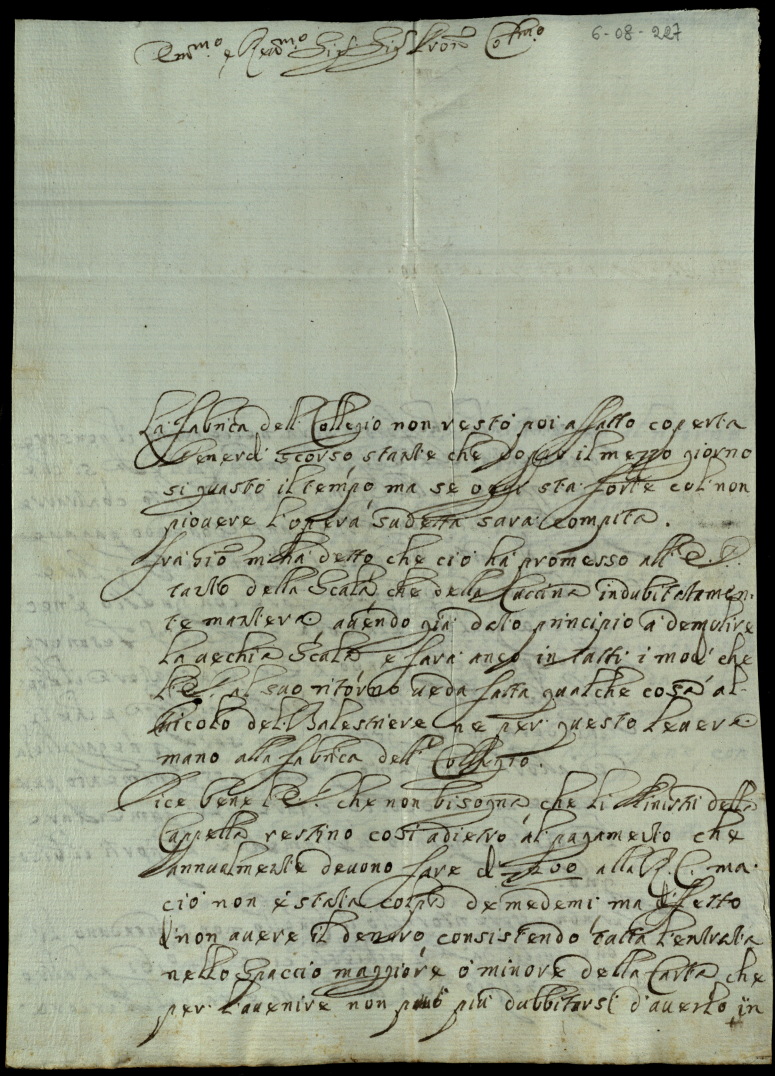 Em.mo e Rev.mo Sig.r Sig.r Pron Col.mo
6-08-227
La fabrica del Collegio non restò poi affatto coperta
Venerdì scorso stante che dopo il mezzo giorno
si guastò il tempo ma se oggi sta forte col non
piovere l'opera sudetta sarà compita.
fra Gio m'ha detto che ciò ha promesso all'E. V.
tanto della Scala che della Cuccina indubitatamen-
te manterà avendo già dato principio a demolire
la vechia Scala e farà anco in tutti i modi che
l'E. V. al suo ritorno veda fatta qualche cosa al
vicolo del Balestriere ne per questo leverà
mano alla fabrica dell Collegio.
Dice bene l'E. V. che non bisogna che li Ministri della
Cappella restino così adietro al pagamento che
annualmente devono fare di 200 alla R. C. ma
ciò non è stata colpa de medemi ma effetto
di non avere il denaro consistendo tutta l'entrata
nello Spaccio maggiore o minore della Carta che
per l'avenire non può più dubbitarsi d'averlo in